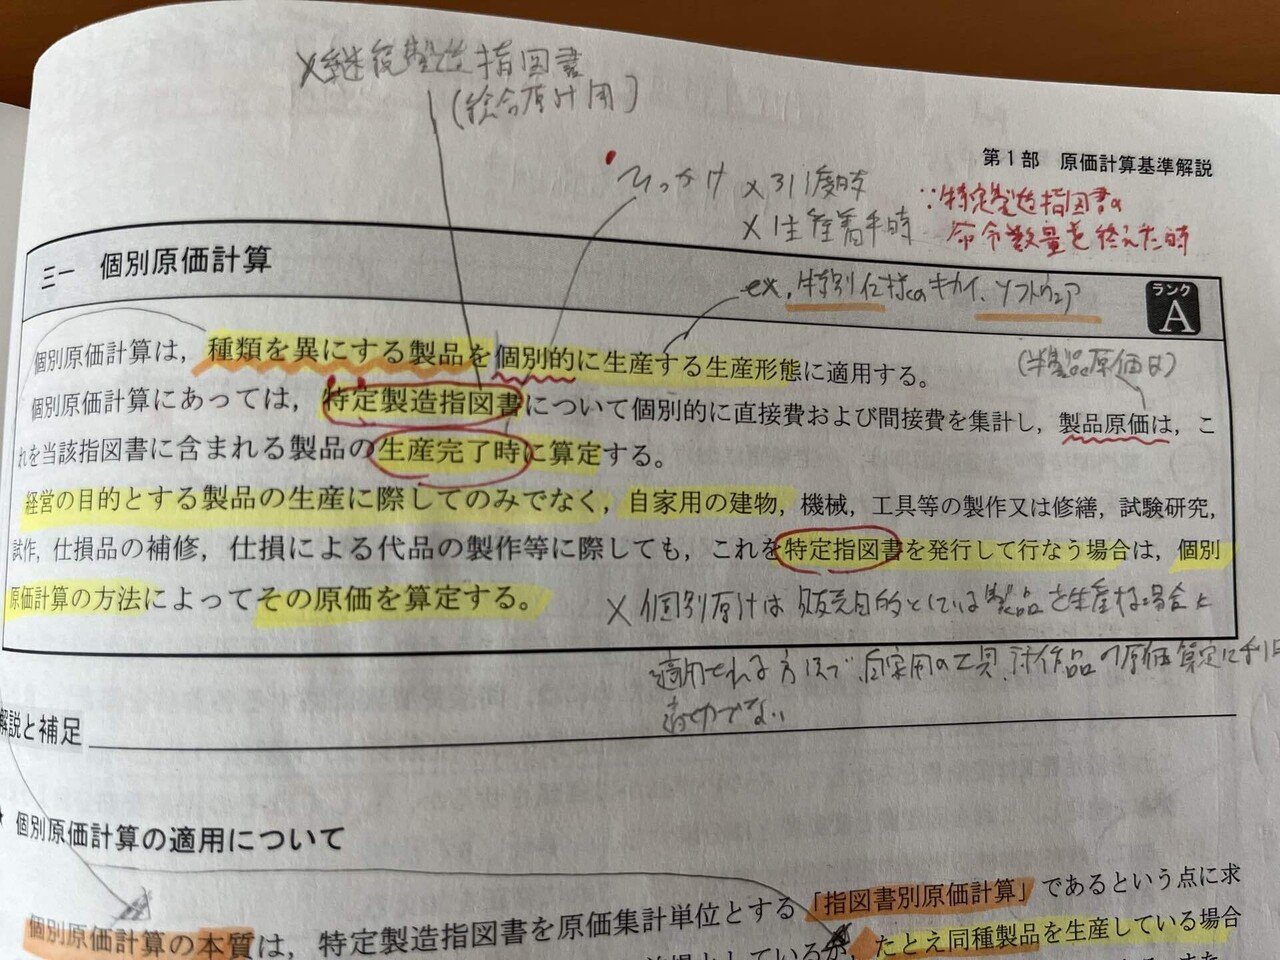 ×継続製造指図書
(総合原計用)
第1部 原価計算基準解説
ひっかけ ×引渡時
×生産着手時
∵特定製造指図書の
命令数量を終えた時
三一 個別原価計算
ex. 特別仕様のキカイ、ソフトウェア
ランク
A
個別原価計算は，種類を異にする製品を個別的に生産する生産形態に適用する。
(半製品原価は)
個別原価計算にあっては，特定製造指図書について個別的に直接費および間接費を集計し，製品原価は，こ
れを当該指図書に含まれる製品の生産完了時に算定する。
経営の目的とする製品の生産に際してのみでなく，自家用の建物，機械，工具等の製作又は修繕，試験研究，
試作，仕損品の補修，仕損による代品の製作等に際しても，これを特定指図書を発行して行なう場合は，個別
原価計算の方法によってその原価を算定する。
×個別原計は販売目的としている製品を生産する場合に
適用される方法で、自家用の工具、試作品の原価算定に利用
適切でない
解説と補足
個別原価計算の適用について
個別原価計算の本質は，特定製造指図書を原価集計単位とする「指図書別原価計算」であるという点に求
としているが，たとえ同種製品を生産している場合